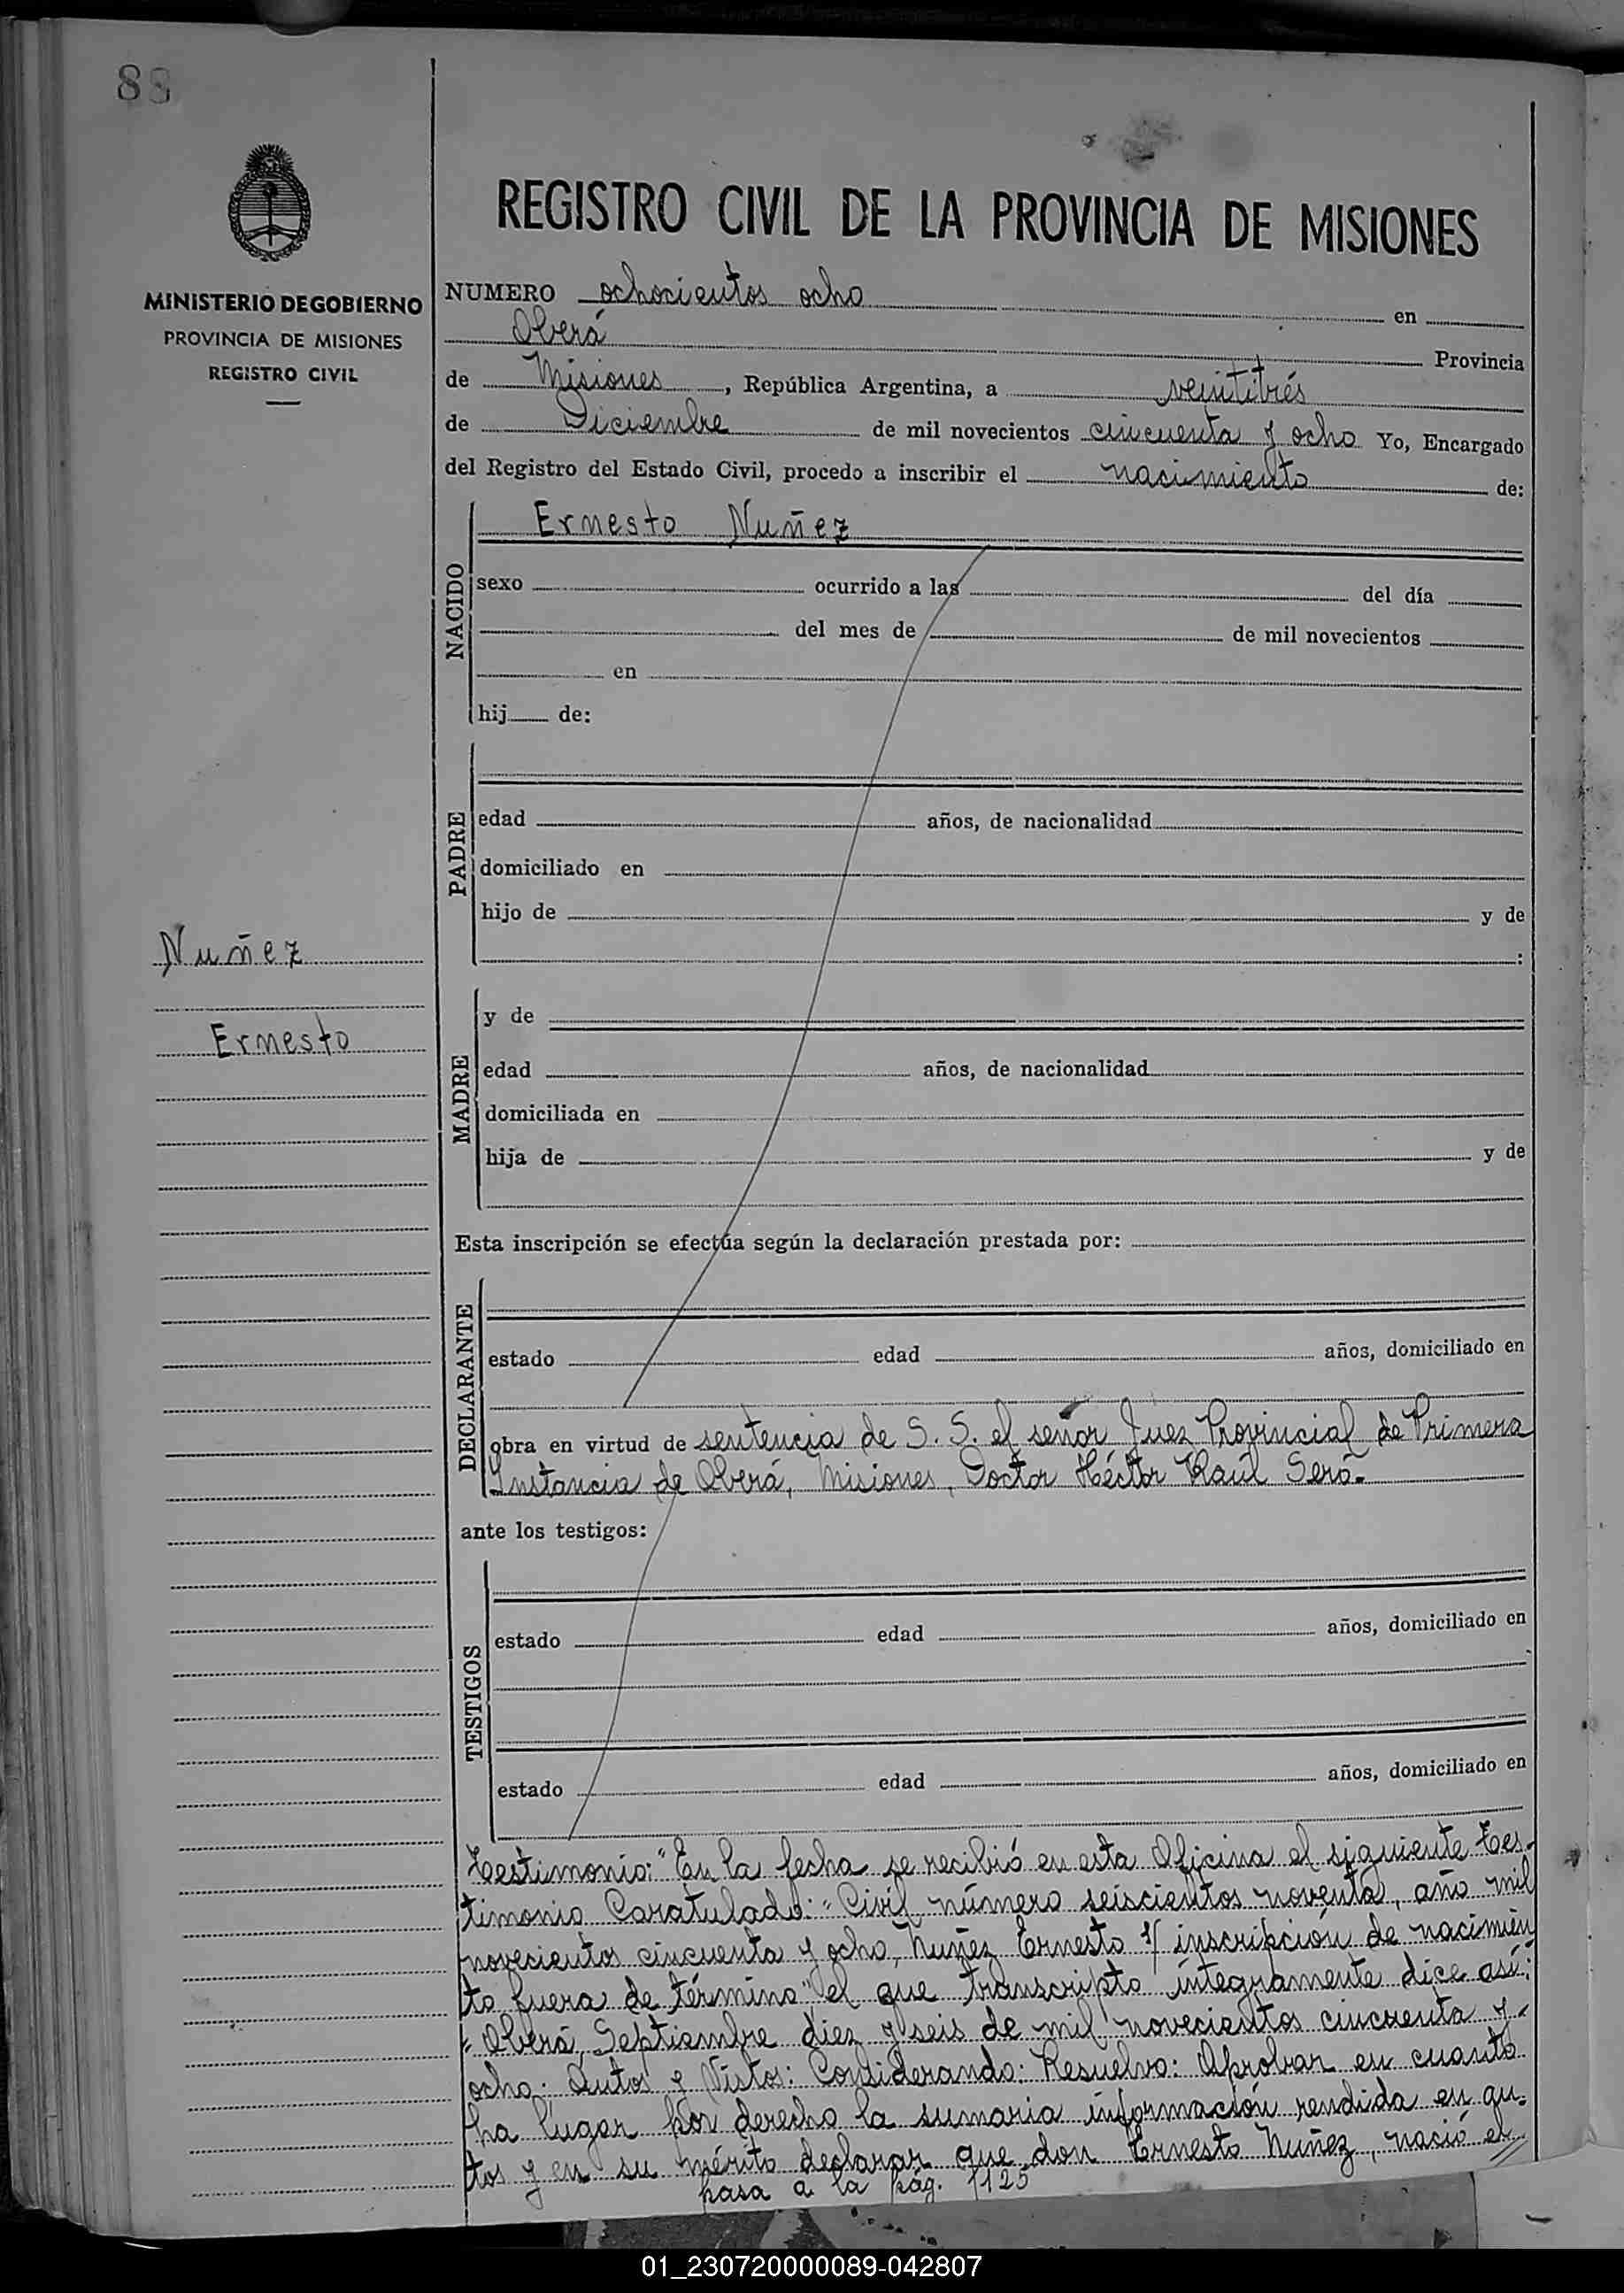 88
MINISTERIO DE GOBIERNO
PROVINCIA DE MISIONES
REGISTRO CIVIL
REGISTRO CIVIL DE LA PROVINCIA DE MISIONES
NUMERO ochocientos ocho en
Oberá Provincia
de Misiones, República Argentina, a veintitrés
de Diciembre de mil novecientos cincuenta y ocho Yo, Encargado
del Registro del Estado Civil, procedo a inscribir el nacimiento de:
NACIDO
Ernesto Nuñez
sexo ocurrido a las del día
del mes de de mil novecientos
en
hij de:
PADRE
edad años, de nacionalidad
domiciliado en
hijo de y de
:
Nuñez
Ernesto
MADRE
y de
edad años, de nacionalidad
domiciliada en
hija de y de
Esta inscripción se efectúa según la declaración prestada por:
DECLARANTE
estado edad años, domiciliado en
obra en virtud de sentencia de S. S. el señor Juez Provincial de Primera
Instancia de Oberá, Misiones, Doctor Héctor Raúl Seró.
ante los testigos:
TESTIGOS
estado edad años, domiciliado en
estado edad años, domiciliado en
Testimonio: "En la fecha se recibió en esta Oficina el siguiente Tes-
timonio Caratulado: "Civil número seiscientos noventa, año mil
novecientos cincuenta y ocho, Nuñez Ernesto s/ inscripción de nacimien
to fuera de término" el que transcripto íntegramente dice así:
"Oberá, Septiembre diez y seis de mil novecientos cincuenta y
ocho. Autos y Vistos: Considerando: Resuelvo: Aprobar en cuanto
ha lugar por derecho la sumaria información rendida en au-
tos y en su mérito declarar que don Ernesto Nuñez, nació el
pasa a la pág. 1125
01_230720000089-042807